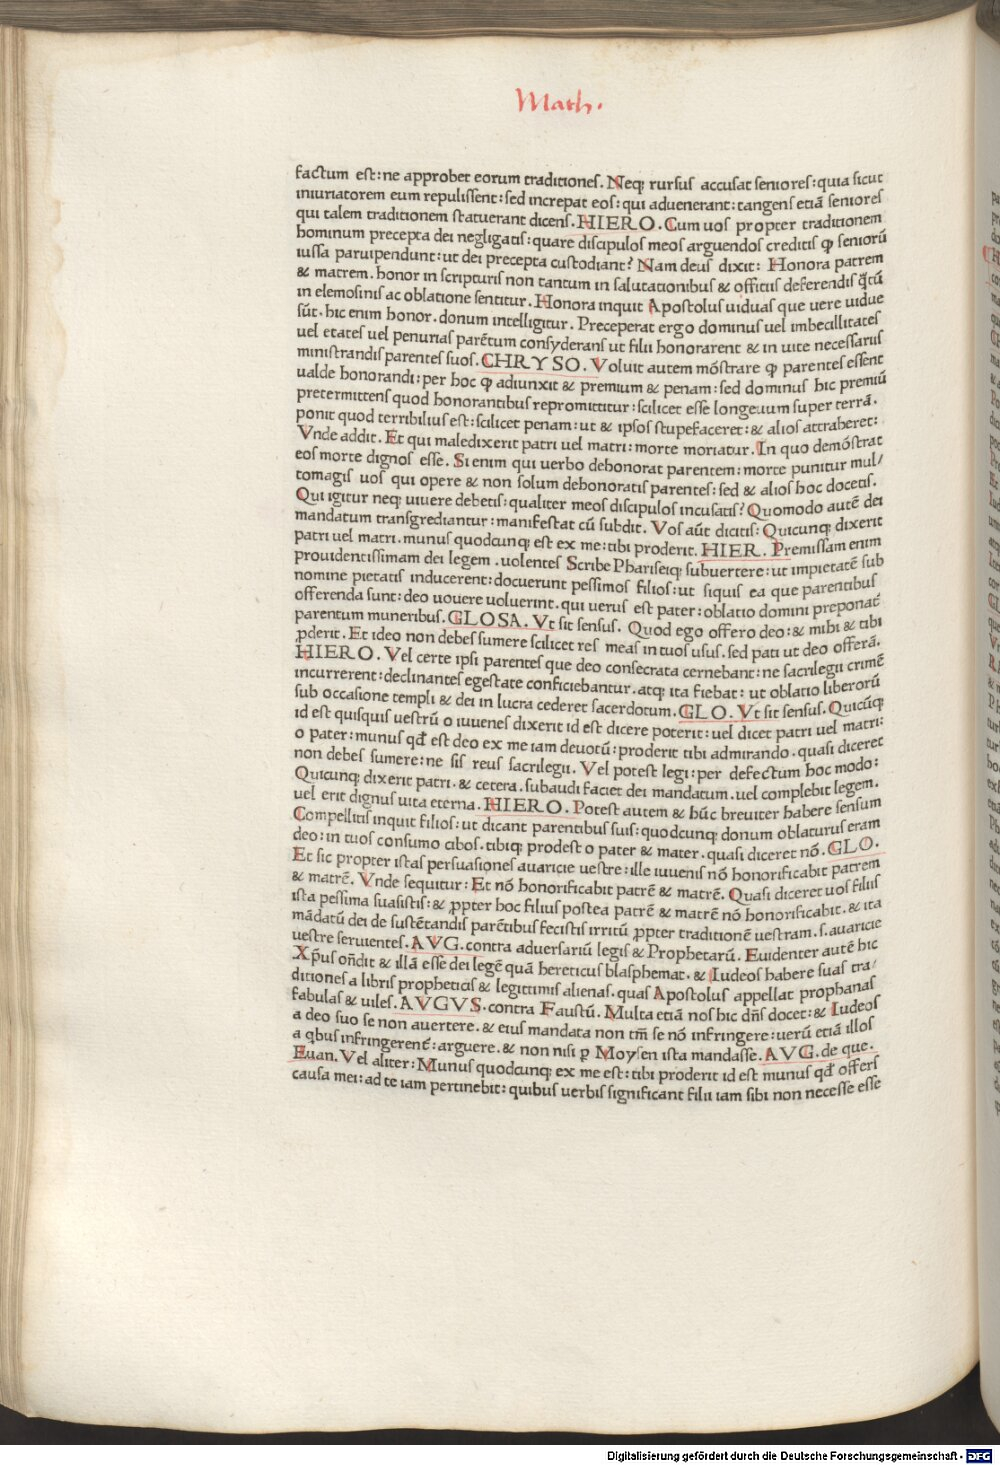 Math.
factum est: ne approbet eorum traditiones. Neq; rursus accusat seniores: quia sicut
iniuriatorem eum repulissent: sed increpat eos: qui aduenerant: tangens etiā seniores
qui talem traditionem statuerant dicens. HIERO. Cum uos propter traditionem
hominum precepta dei negligatis: quare discipulos meos arguendos creditis ꝙ seniorū
iussa paruipendunt: ut dei precepta custodiant? Nam deus dixit: Honora patrem
& matrem. honor in scripturis non tantum in salutationibus & officiis deferendis q̄tū
in elemosinis ac oblatione sentitur. Honora inquit Apostolus uiduas que uere uidue
sūt. hic enim honor. donum intelligitur. Preceperat ergo dominus uel imbecillitates
uel etates uel penurias parētum consyderans ut filii honorarent & in uite necessariis
ministrandis parentes suos. CHRYSO. Voluit autem mōstrare ꝙ parentes essent
ualde honorandi: per hoc ꝙ adiunxit & premium & penam: sed dominus hic premiū
pretermittens quod honorantibus repromittitur: scilicet esse longeuum super terrā.
ponit quod terribilius est: scilicet penam: ut & ipsos stupefaceret: & alios attraheret:
Vnde addit. Et qui maledixerit patri uel matri: morte moriatur. In quo demōstrat
eos morte dignos esse. Si enim qui uerbo dehonorat parentem: morte punitur mul/
tomagis uos qui opere & non solum dehonoratis parentes: sed & alios hoc docetis.
Qui igitur neq; uiuere debetis: qualiter meos discipulos incusatis? Quomodo autē dei
mandatum transgrediantur: manifestat cū subdit. Vos aūt dicitis: Quicunq; dixerit
patri uel matri. munus quodcunq; est ex me: tibi proderit. HIER. Premissam enim
prouidentissimam dei legem. uolentes Scribe Phariseiq; subuertere: ut impietatē sub
nomine pietatis inducerent: docuerunt pessimos filios: ut siquis ea que parentibus
offerenda sunt: deo uouere uoluerint. qui uerus est pater: oblatio domini preponat̄
parentum muneribus. GLOSA. Vt sit sensus. Quod ego offero deo: & mihi & tibi
ꝓderit. Et ideo non debes sumere scilicet res meas in tuos usus. sed pati ut deo offerā.
HIERO. Vel certe ipsi parentes que deo consecrata cernebant: ne sacrilegii crimē
incurrerent: declinantes egestate conficiebantur. atq; ita fiebat: ut oblatio liberorū
sub occasione templi & dei in lucra cederet sacerdotum. GLO. Vt sit sensus. Quicūq;
id est quisquis uestrū o iuuenes dixerit id est dicere poterit: uel dicet patri uel matri:
o pater: munus qđ est deo ex me iam deuotū: proderit tibi admirando. quasi diceret
non debes sumere: ne sis reus sacrilegii. Vel potest legi: per defectum hoc modo:
Quicunq; dixerit patri. & cetera. subaudi faciet dei mandatum. uel complebit legem.
uel erit dignus uita eterna. HIERO. Potest autem & hūc breuiter habere sensum
Compellitis inquit filios: ut dicant parentibus suis: quodcunq; donum oblaturus eram
deo: in tuos consumo cibos. tibiq; prodest o pater & mater. quasi diceret nō. GLO.
Et sic propter istas persuasiones auaricie uestre: ille iuuenis nō honorificabit patrem
& matrē. Vnde sequitur: Et nō honorificabit patrē & matrē. Quasi diceret uos filiis
ista pessima suasistis: & ꝓpter hoc filius postea patrē & matrē nō honorificabit. & ita
mādatū dei de sustētandis parētibus fecistis irritū ꝓpter traditionē uestram. s. auaricie
uestre seruientes. AVG. contra aduersariū legis & Prophetarū. Euidenter autē hic
Xp̄us oñdit & illā esse dei legē quā hereticus blasphemat. & Iudeos habere suas tra/
ditiones a libris propheticis & legittimis alienas. quas Apostolus appellat prophanas
fabulas & uiles. AVGVS. contra Faustū. Multa etiā nos hic dñs docet: & Iudeos
a deo suo se non auertere. & eius mandata non tm̄ se nō infringere: uerū etiā illos
a qbus infringerent̄: arguere. & non nisi ꝑ Moysen ista mandasse. AVG. de que.
Euan. Vel aliter: Munus quodcunq; ex me est: tibi proderit id est munus qđ offers
causa mei: ad te iam pertinebit: quibus uerbis significant filii iam sibi non necesse esse
Digitalisierung gefördert durch die Deutsche Forschungsgemeinschaft - DFG